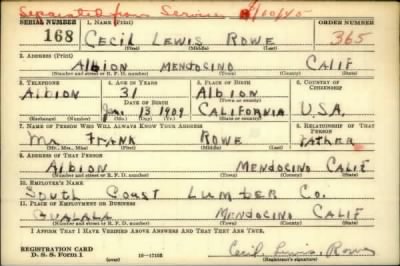 Separated from Service 9/10/45
1. NAME (Print)
SERIAL NUMBER
ORDER NUMBER
168 CECIL LEWIS ROWE 365
(First) (Middle) (Last)
2. ADDRESS (Print)
ALBION MENDOCINO CALIF
(Number and street or R. F. D. number) (Town) (County) (State)
3. TELEPHONE 4. AGE IN YEARS 5. PLACE OF BIRTH 6. COUNTRY OF CITIZENSHIP
ALBION 31 ALBION
DATE OF BIRTH (Town or county)
Jan. 13 1909 CALIFORNIA U.S.A.
(Exchange) (Number) (Mo.) (Day) (Yr.) (State or country)
7. NAME OF PERSON WHO WILL ALWAYS KNOW YOUR ADDRESS 8. RELATIONSHIP OF THAT PERSON
Mr. FRANK ROWE FATHER
(Mr., Mrs., Miss) (First) (Middle) (Last)
9. ADDRESS OF THAT PERSON
ALBION MENDOCINO CALIF
(Number and street or R. F. D. number) (Town) (County) (State)
10. EMPLOYER'S NAME
SOUTH COAST LUMBER CO.
11. PLACE OF EMPLOYMENT OR BUSINESS
GUALALA MENDOCINO CALIF
(Number and street or R. F. D. number) (Town) (County) (State)
I AFFIRM THAT I HAVE VERIFIED ABOVE ANSWERS AND THAT THEY ARE TRUE.
REGISTRATION CARD
D. S. S. FORM 1 16—17105 Cecil Lewis Rowe
(Registrant's signature)